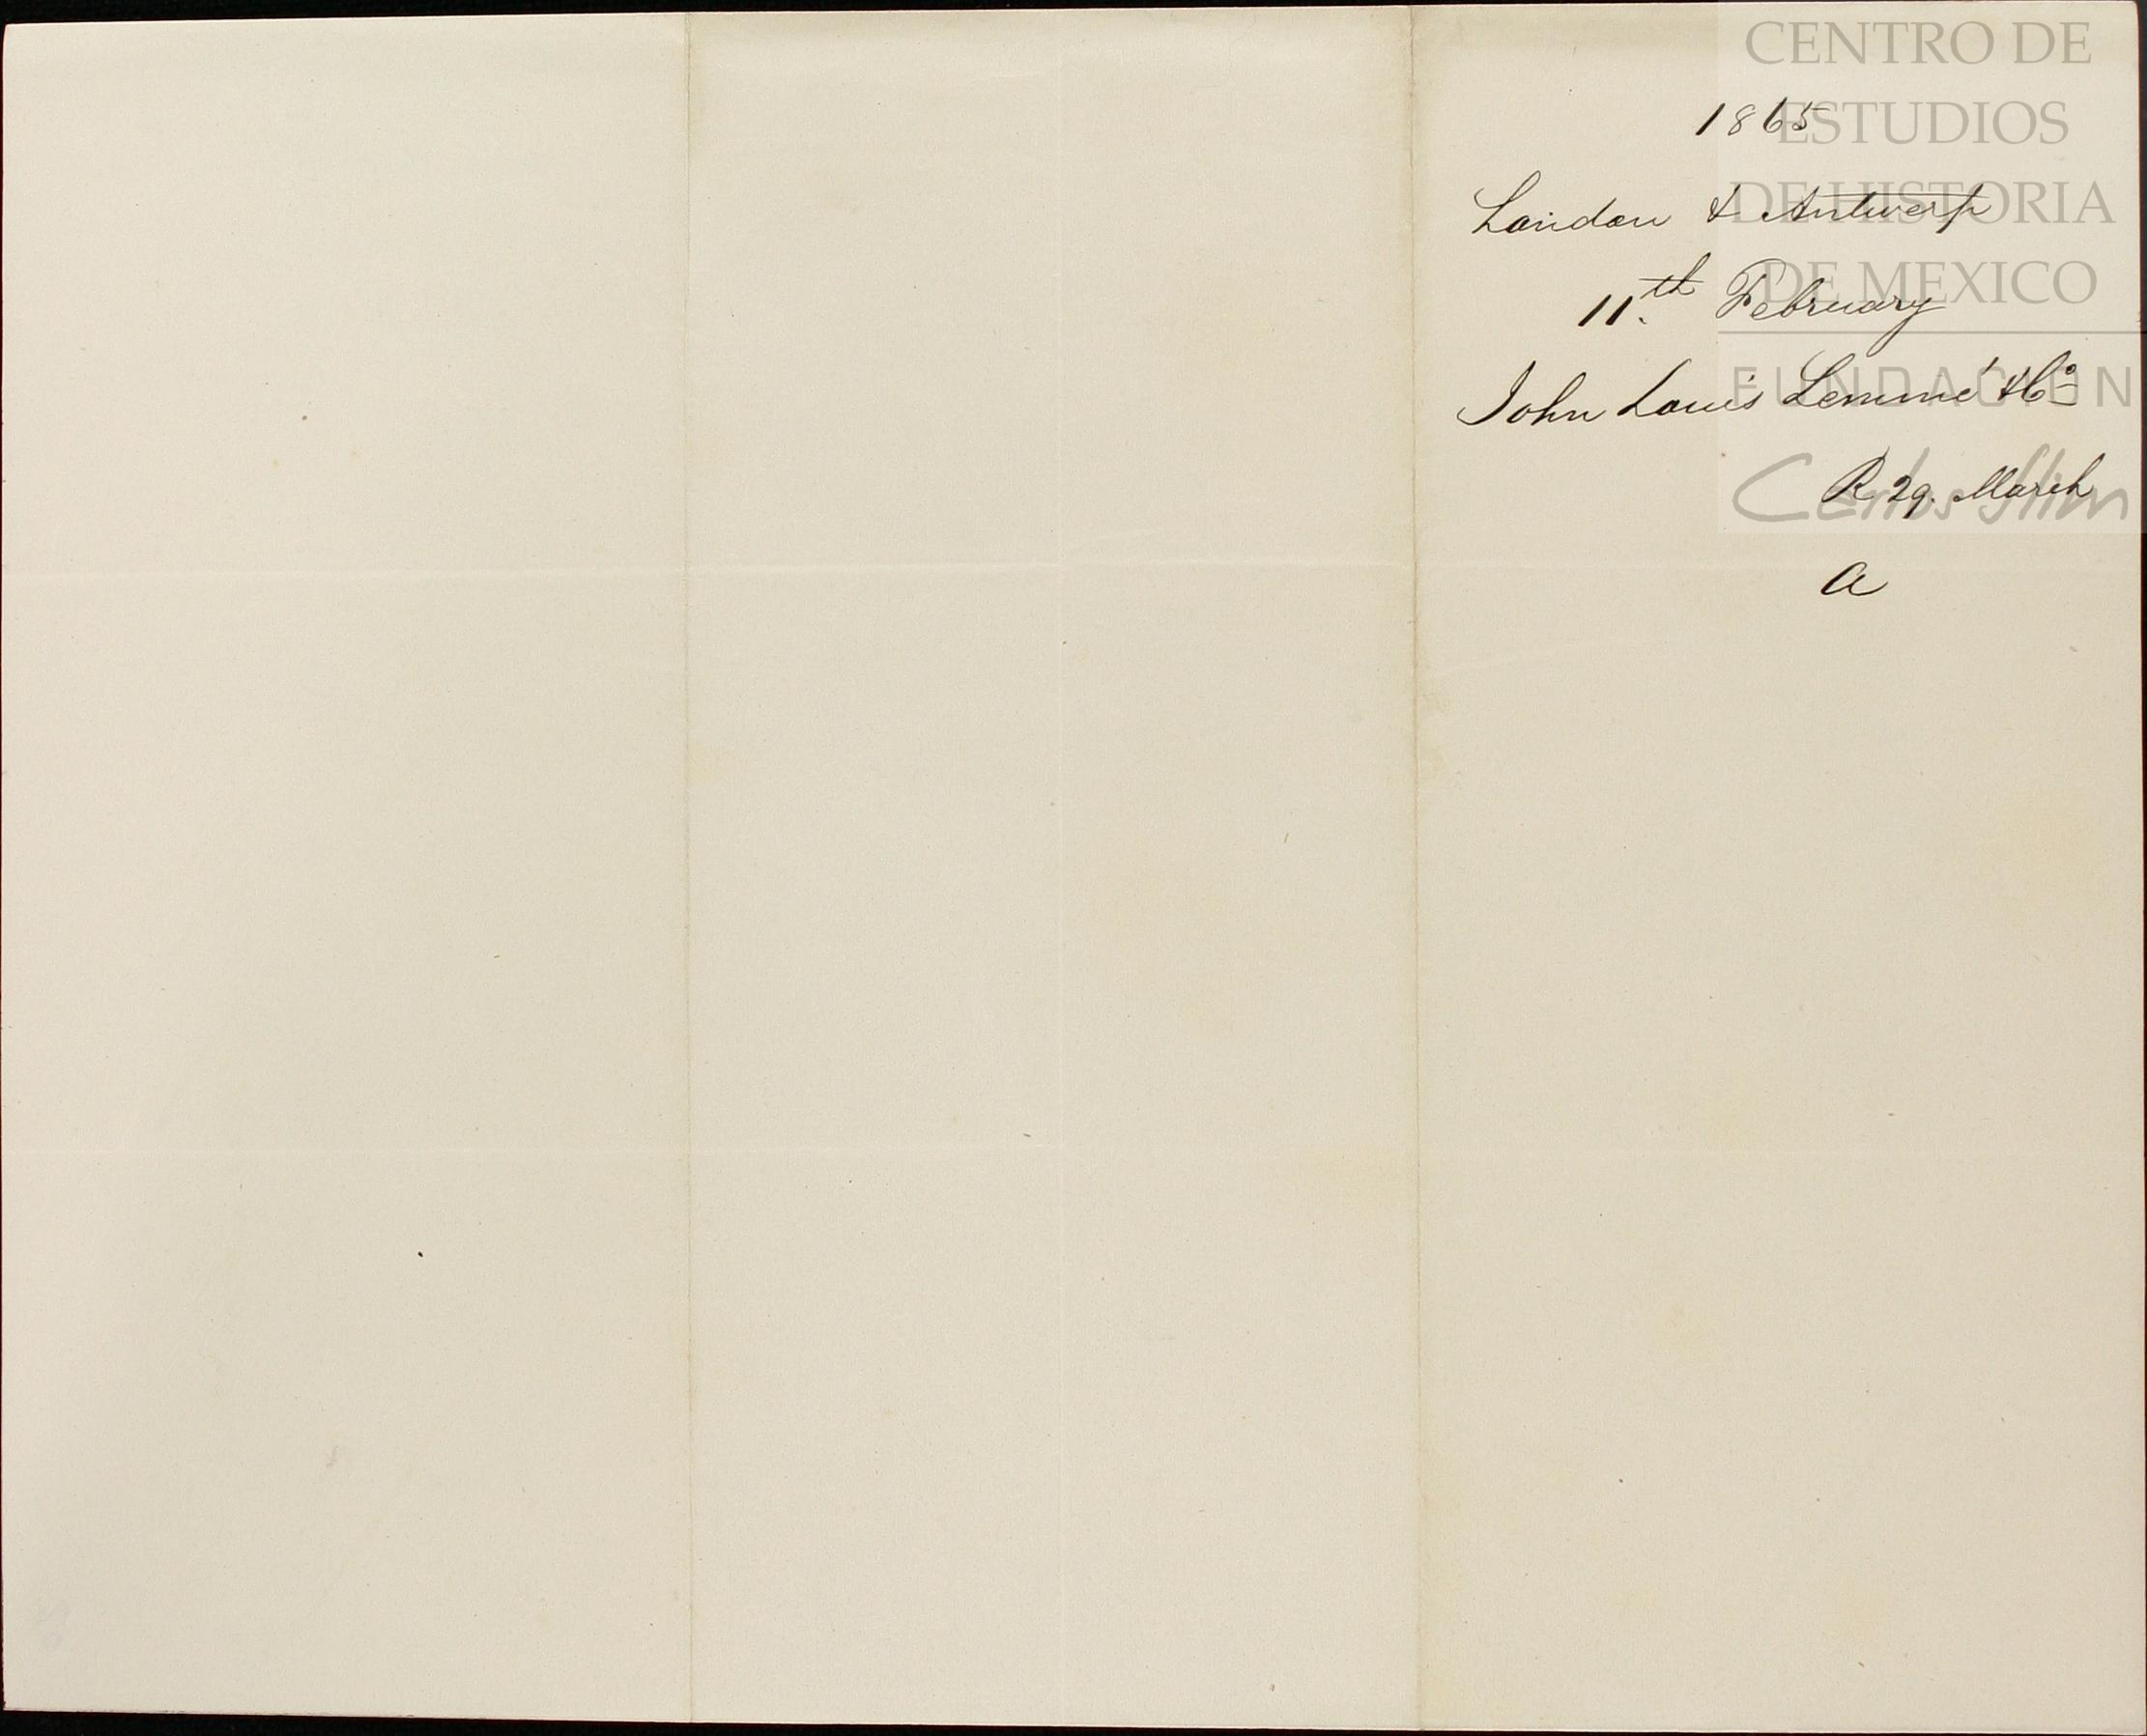 CENTRO DE
ESTUDIOS
DE HISTORIA
DE MEXICO
FUNDACION
Carlos Slim
1865
London & Antwerp
11th February
John Louis Lemmé & Co
R 29. March
a